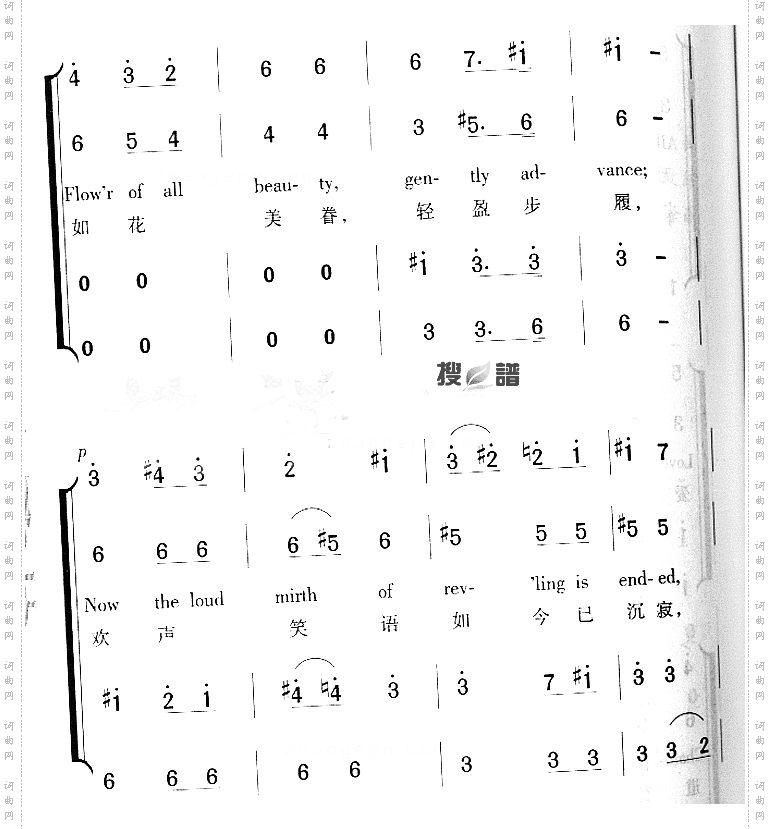 4̇ 3̇ 2̇ | 6 6 | 6 7. #1̇ | #1̇ –
6 5 4 | 4 4 | 3 #5. 6 | 6 –
Flow'r of all beau- ty, gen- tly ad- vance;
如 花 美 眷, 轻 盈 步 履,
0 0 | 0 0 | #1̇ 3̇. 3̇ | 3̇ –
0 0 | 0 0 | 3 3. 6 | 6 –
搜 譜
p
3̇ #4̇ 3̇ | 2̇ #1̇ | 3̇ #2̇ ♮2̇ 1̇ | #1̇ 7
6 6 6 | 6 #5 6 | #5 5 5 | #5 5
Now the loud mirth of rev- 'ling is end- ed,
欢 声 笑 语 如 今 已 沉 寂,
#1̇ 2̇ 1̇ | #4̇ ♮4̇ 3̇ | 3̇ 7 #1̇ | 3̇ 3̇
6 6 6 | 6 6 | 3 3 3 | 3 3 2
词曲网